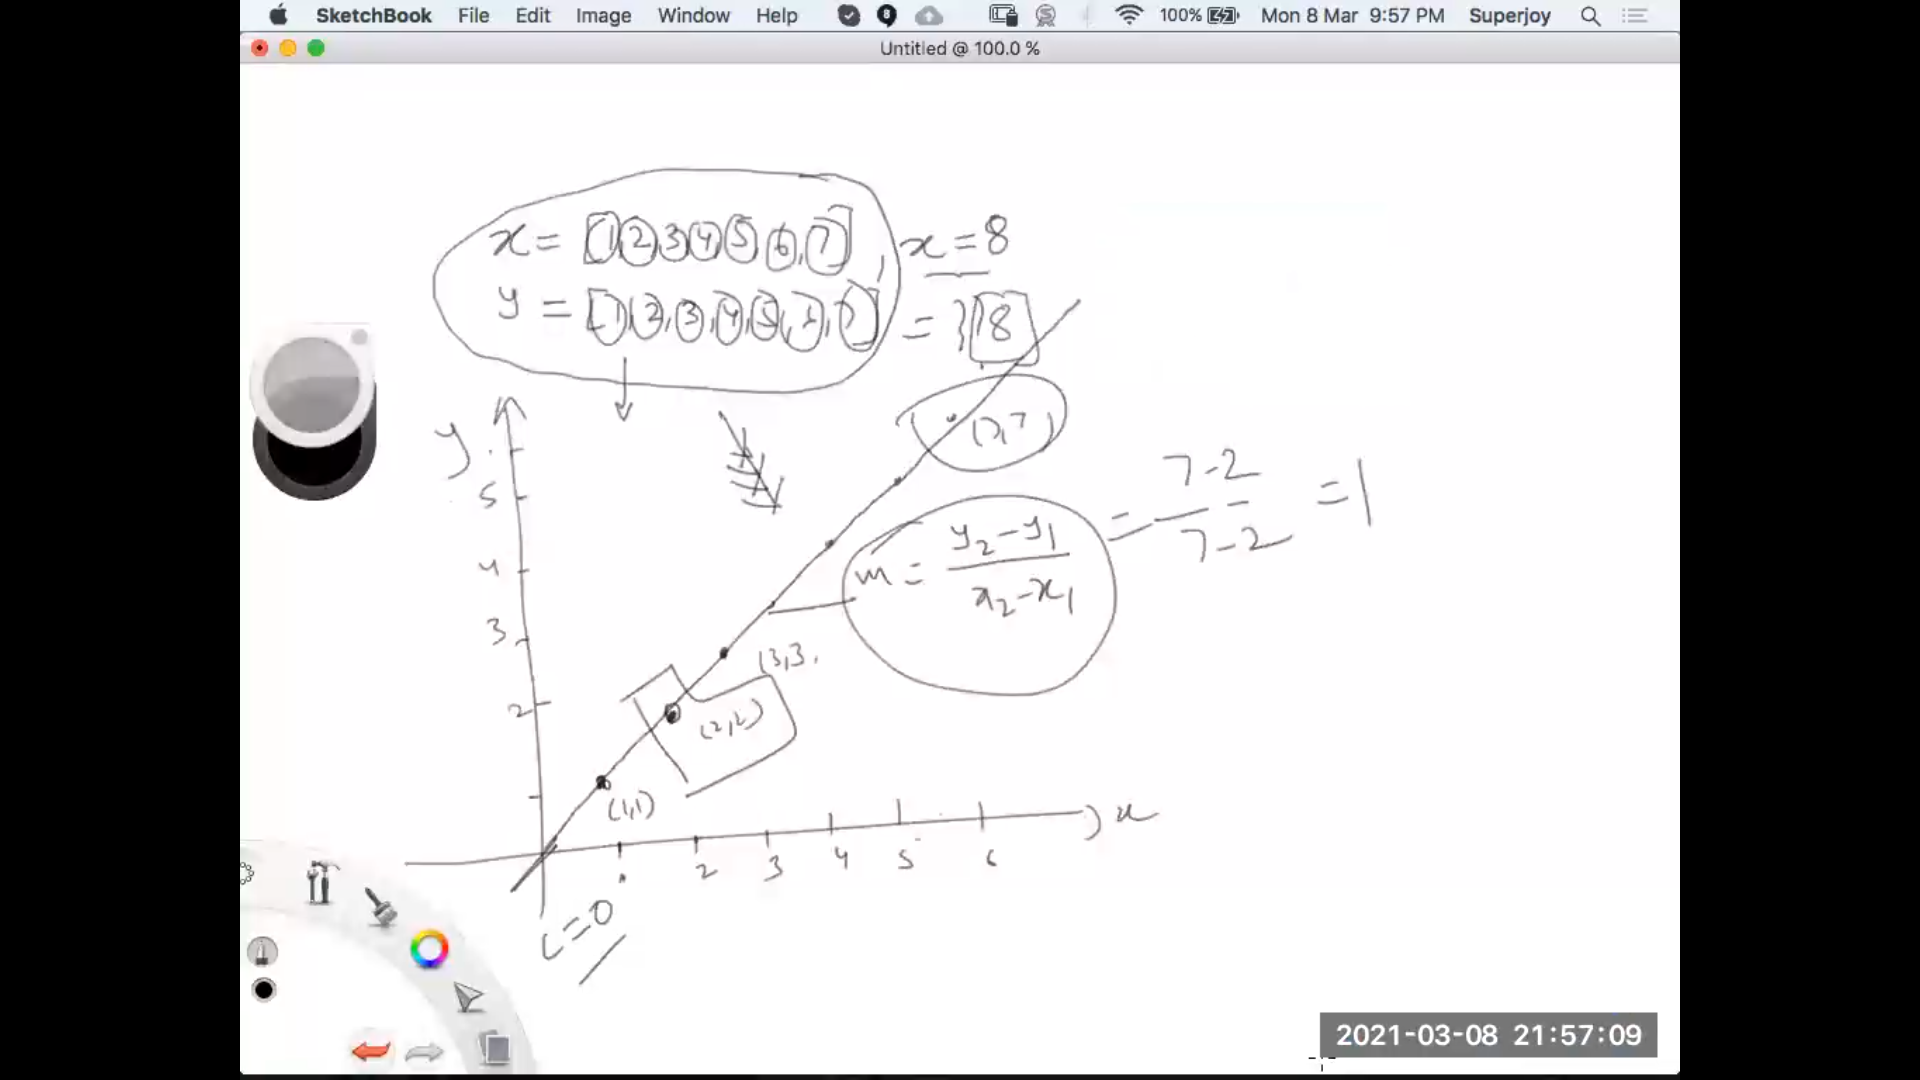 SketchBook File Edit Image Window Help 100% Mon 8 Mar 9:57 PM Superjoy
Untitled @ 100.0 %
x = [1, 2, 3, 4, 5, 6, 7], x = 8
y = [1, 2, 3, 4, 5, 6, 7] = 8
y
(7,7)
7-2
7-2
= 1
=
5
m = y₂-y₁
x₂-x₁
4
3
(3,3
2
(2,2)
(1,1)
x
2 3 4 5 6
c=0
2021-03-08 21:57:09